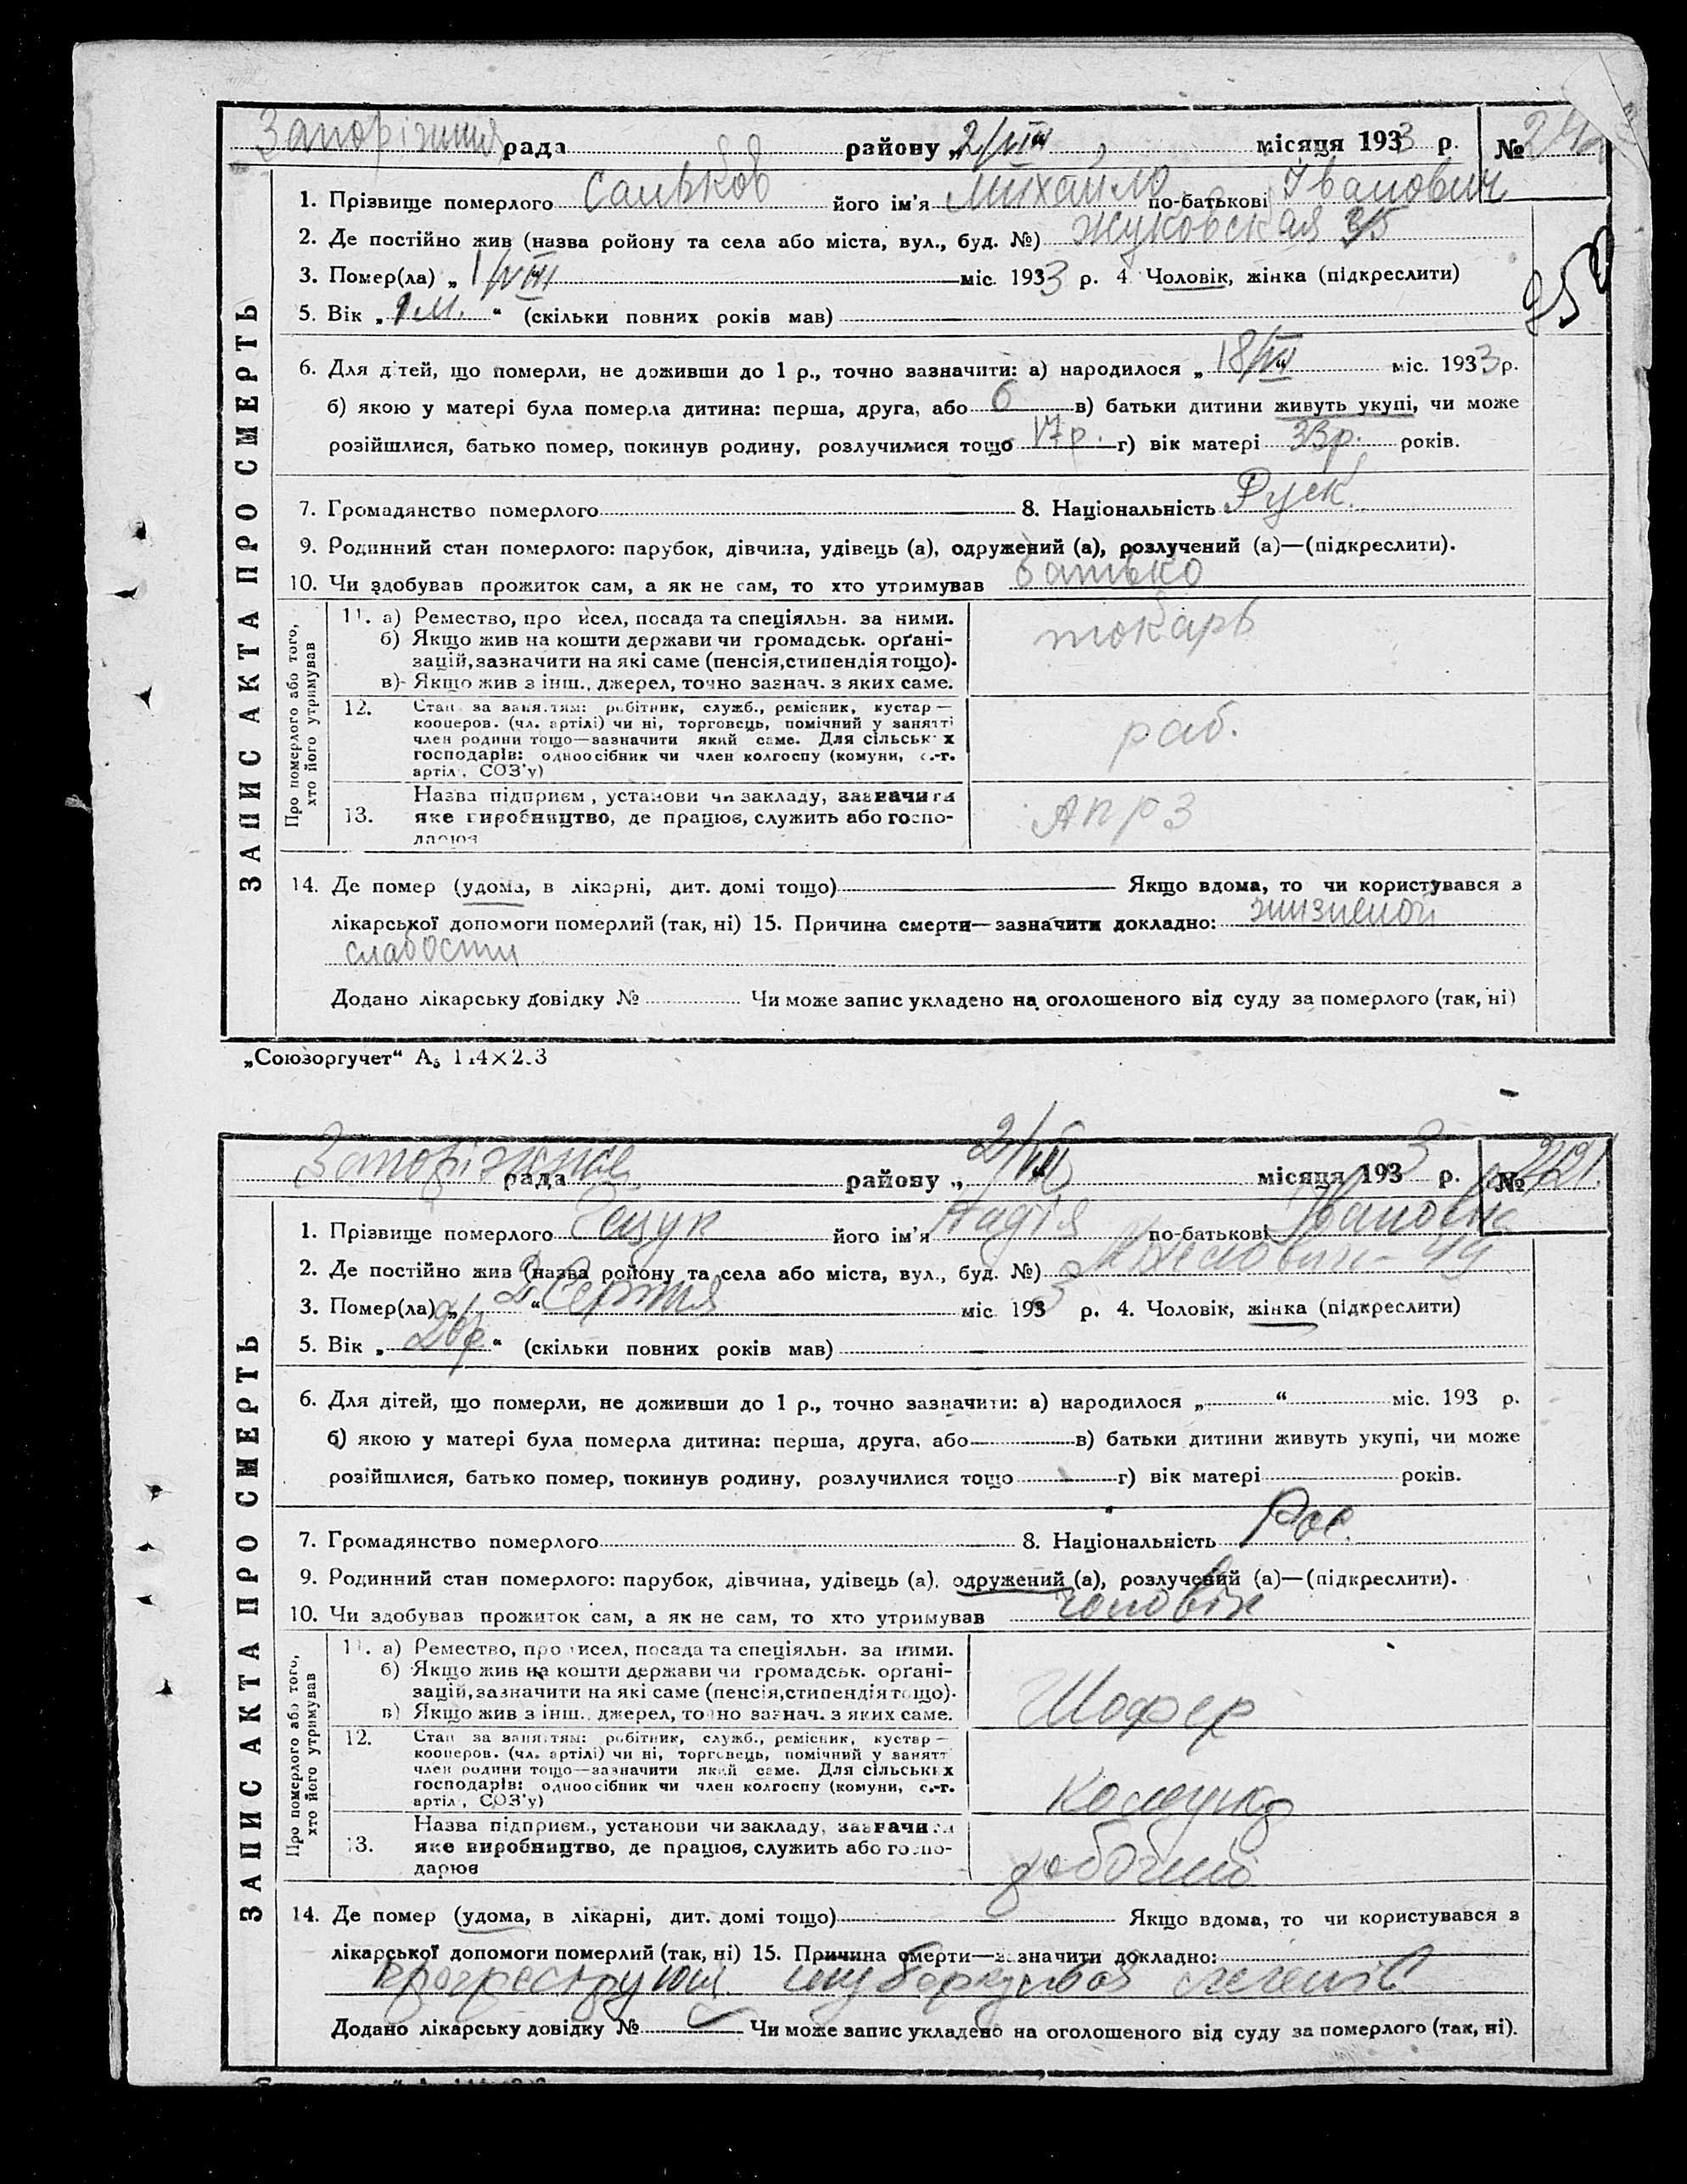 Запоріжжя рада району „2/VIII“ місяця 1933 р. №
1. Прізвище померлого Сальков його ім'я Михайло по-батькові Іванович
2. Де постійно жив (назва ройону та села або міста, вул., буд. №) Жуковская
3. Помер(ла) „1/VIII міс. 1933 р. 4 Чоловік, жінка (підкреслити)
5. Вік „1 м.“ (скільки повних років мав)
6. Для дітей, що померли, не доживши до 1 р., точно зазначити: а) народилося „18/VI“ міс. 1933 р.
б) якою у матері була померла дитина: перша, друга, або 6 в) батьки дитини живуть укупі, чи може
розійшлися, батько помер, покинув родину, розлучилися тощо 17 р. г) вік матері 33 р. років.
7. Громадянство померлого 8. Національність Руск.
9. Родинний стан померлого: парубок, дівчина, удівець (а), одружений (а), розлучений (а)—(підкреслити).
10. Чи здобував прожиток сам, а як не сам, то хто утримував батько
ЗАПИС АКТА ПРО СМЕРТЬ
Про померлого або того,
хто його утримував
11. а) Ремество, про исел, посада та спеціяльн. за ними.
б) Якщо жив на кошти держави чи громадськ. орґані-
зацій, зазначити на які саме (пенсія, стипендія тощо).
в) Якщо жив з інш., джерел, точно зазнач. з яких саме.
токарь
12. Стан за заняттям: робітник, служб., ремісник, кустар—
кооперов. (чл. артілі) чи ні, торговець, помічний у занятті
член родини тощо—зазначити який саме. Для сільських
господарів: одноосібник чи член колгоспу (комуни, с.-г.
артіл., СОЗ'у)
раб.
13. Назва підприєм., установи чи закладу, зазначити
яке виробництво, де працює, служить або госпо-
дарює
АПРЗ
14. Де помер (удома, в лікарні, дит. домі тощо) Якщо вдома, то чи користувався з
лікарської допомоги померлий (так, ні) 15. Причина смерти—зазначити докладно: жизненой
слабости
Додано лікарську довідку № Чи може запис укладено на оголошеного від суду за померлого (так, ні)
„Союзоргучет“
Запоріжжя рада району „2/VIII“ місяця 1933 р. №
1. Прізвище померлого його ім'я Надія по-батькові Івановна
2. Де постійно жив (назва ройону та села або міста, вул., буд. №)
3. Помер(ла) „2“ Серпня міс. 1933 р. 4. Чоловік, жінка (підкреслити)
5. Вік „26 р.“ (скільки повних років мав)
6. Для дітей, що померли, не доживши до 1 р., точно зазначити: а) народилося „ “ міс. 193 р.
б) якою у матері була померла дитина: перша, друга, або в) батьки дитини живуть укупі, чи може
розійшлися, батько помер, покинув родину, розлучилися тощо г) вік матері років.
7. Громадянство померлого 8. Національність Рос.
9. Родинний стан померлого: парубок, дівчина, удівець (а), одружений (а), розлучений (а)—(підкреслити).
10. Чи здобував прожиток сам, а як не сам, то хто утримував чоловік
ЗАПИС АКТА ПРО СМЕРТЬ
Про померлого або того,
хто його утримував
11. а) Ремество, про исел, посада та спеціяльн. за ними.
б) Якщо жив на кошти держави чи громадськ. орґані-
зацій, зазначити на які саме (пенсія, стипендія тощо).
в) Якщо жив з інш., джерел, точно зазнач. з яких саме.
Шофер
12. Стан за заняттям: робітник, служб., ремісник, кустар—
кооперов. (чл. артілі) чи ні, торговець, помічний у занятт
член родини тощо—зазначити який саме. Для сільських
господарів: одноосібник чи член колгоспу (комуни, с.-г.
артіл., СОЗ'у)
13. Назва підприєм., установи чи закладу, зазначити
яке виробництво, де працює, служить або госпо-
дарює
робочий
14. Де помер (удома, в лікарні, дит. домі тощо) Якщо вдома, то чи користувався з
лікарської допомоги померлий (так, ні) 15. Причина смерти—зазначити докладно:
туберкульоз легенів
Додано лікарську довідку № Чи може запис укладено на оголошеного від суду за померлого (так, ні).